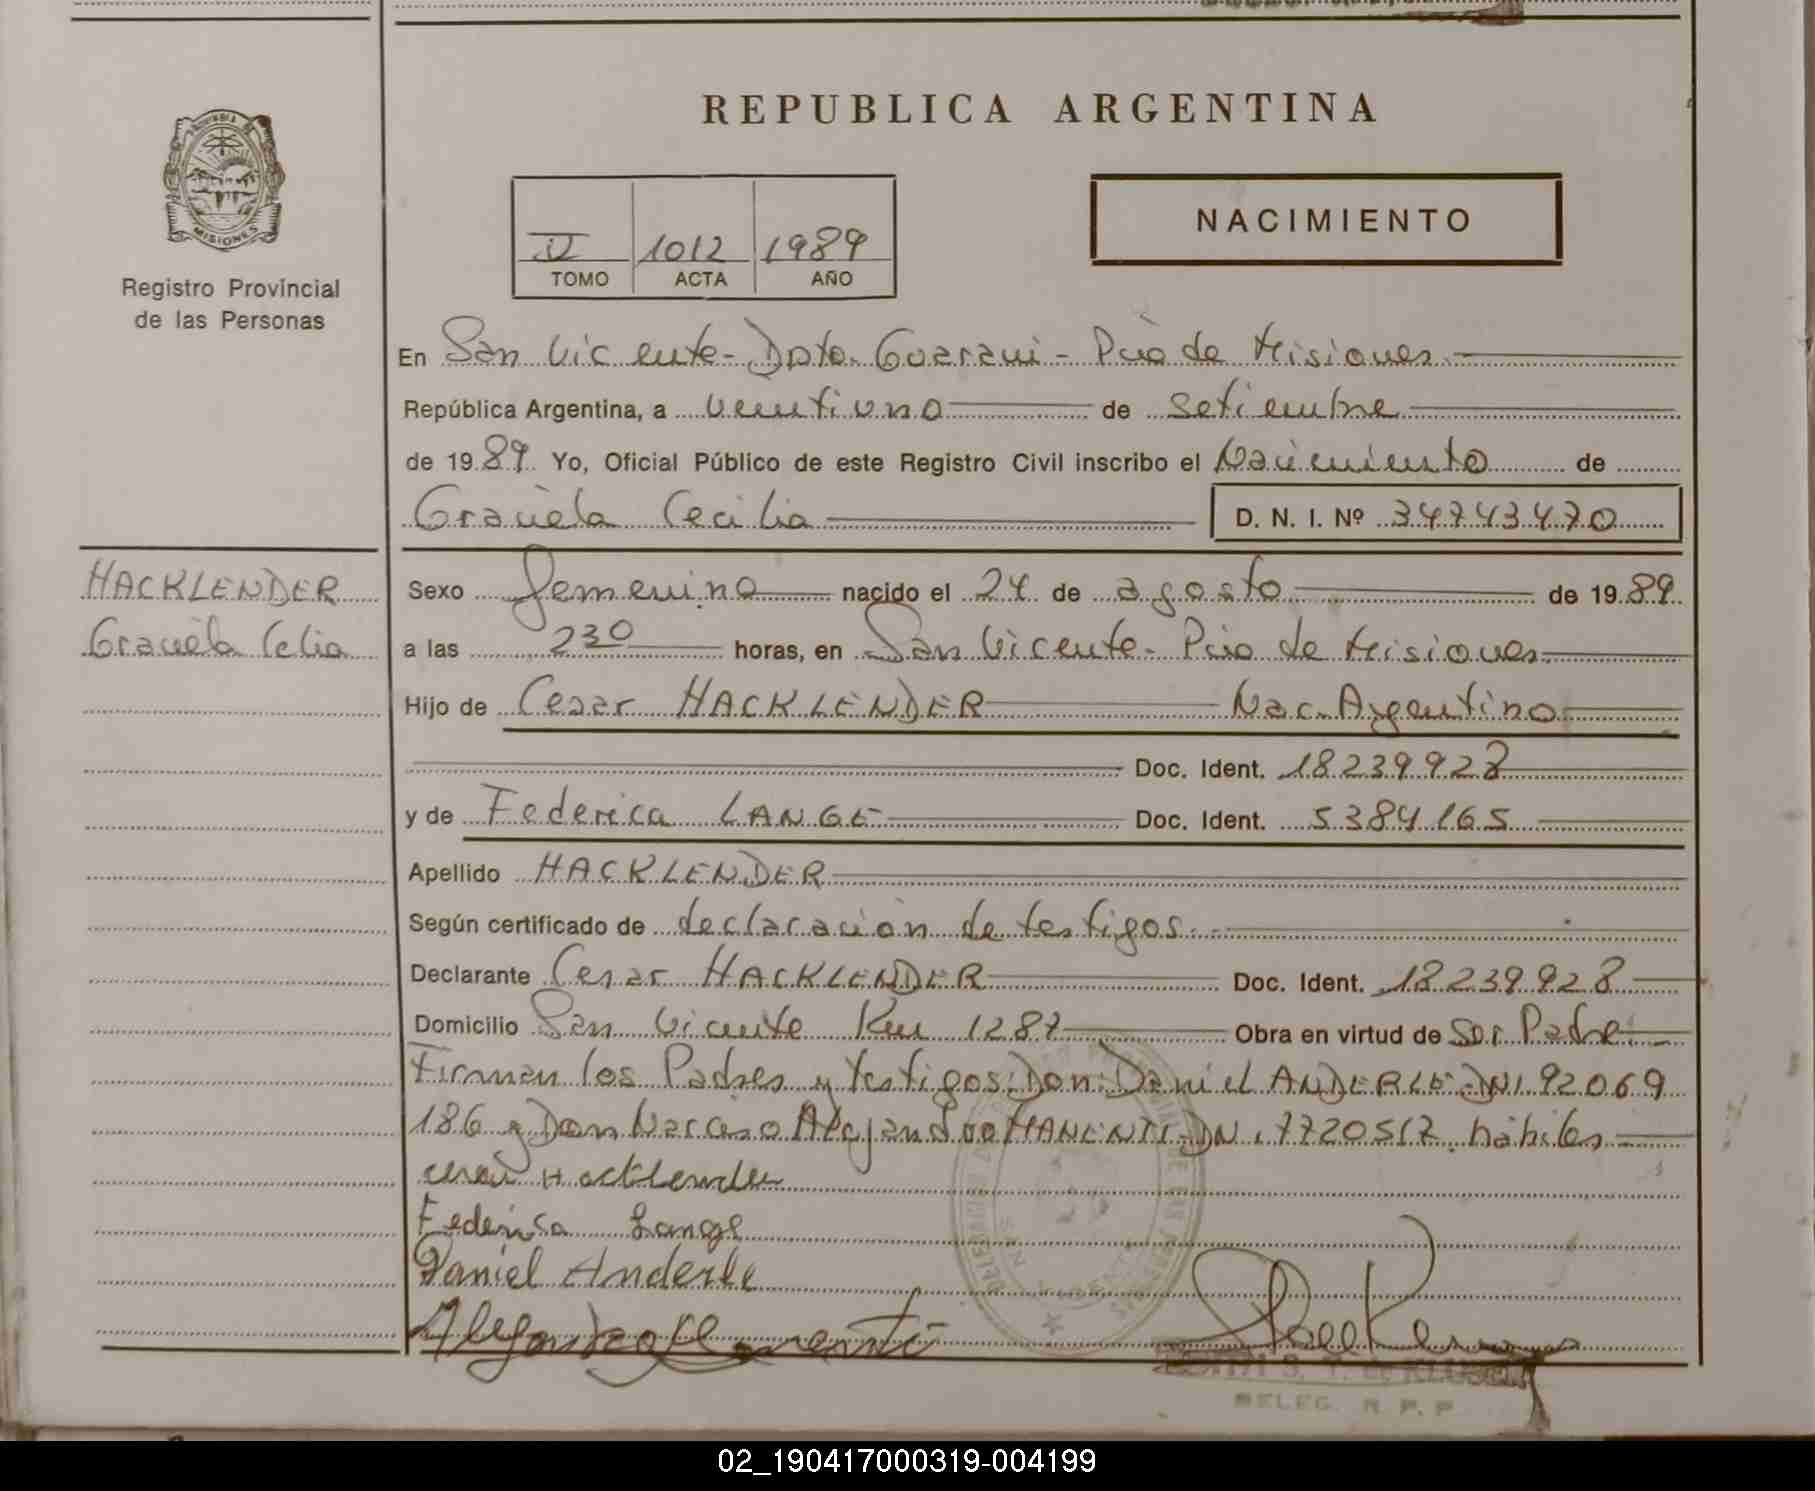 REPUBLICA ARGENTINA
PROVINCIA DE
MISIONES
Registro Provincial
de las Personas
IV 1012 1989
TOMO ACTA AÑO
NACIMIENTO
En San Vicente - Dpto. Guarani - Pcia de Misiones
República Argentina, a veintiuno de setiembre
de 1989. Yo, Oficial Público de este Registro Civil inscribo el Nacimiento de
Graciela Cecilia D. N. I. Nº 34743470
HACKLENDER
Graciela Celia
Sexo femenino nacido el 24 de agosto de 1989.
a las 230 horas, en San Vicente - Pcia de Misiones
Hijo de Cesar HACKLENDER Nac. Argentino
Doc. Ident. 18239928
y de Federica LANGE Doc. Ident. 5384165
Apellido HACKLENDER
Según certificado de declaración de testigos.
Declarante Cesar HACKLENDER Doc. Ident. 18239928
Domicilio San Vicente Km 1287 Obra en virtud de Ser Padre.
Firman los Padres y testigos: Don: Daniel ANDERLE - DNI 92069
186 y Don Narciso Alejandro MANENTI - DNI 7720517 hábiles
Cesar Hacklender
Federica Lange
Daniel Anderle
Alejandro Manenti
DELEG. R. P. P.
02_190417000319-004199